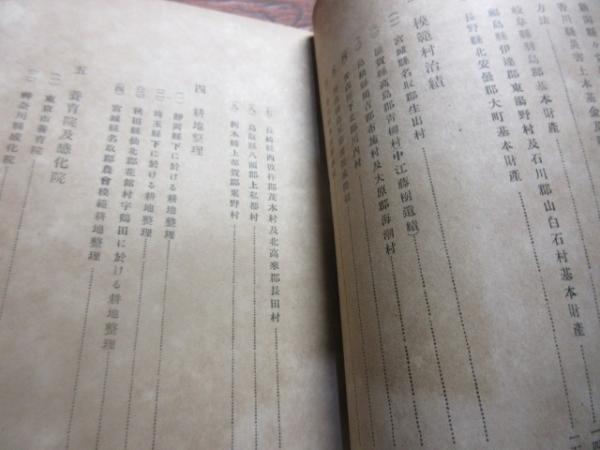 縣災害土木基金
方法
岐阜縣羽島郡基本財產
福島縣伊達郡東湯野村及石川郡山白石村基本財產
長野縣北安曇郡大町基本財產
模範村治績
(一) 宮城縣名取郡生出村
滋賀縣高島郡靑柳村(中江藤樹遺績)
島根縣簸古郡布施村及大原郡海潮村
河內村
(七) 長崎縣西彼杵郡茂木村及北高來郡長田村
(八) 鳥取縣八頭郡上私都村
(九) 栃木縣上都賀郡東野村
四 耕地整理
(一) 靜岡縣下に於ける耕地整理
(二) 埼玉縣下に於ける耕地整理
(三) 秋田縣仙北郡花館村字鶴田に於ける耕地整理
(四) 宮城縣名取郡農會模範耕地整理
五 養育院及感化院
(一) 東京市養育院
(二) 神奈川縣感化院